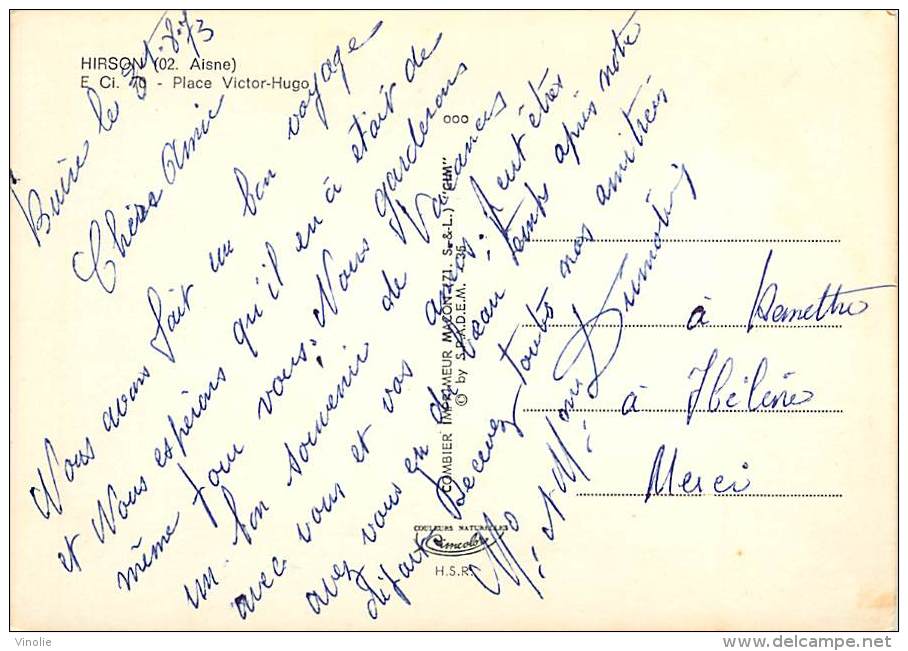 HIRSON (02. Aisne)
E Ci. 70 - Place Victor-Hugo
Buire le 31.8.73
Chère Amie
Nous avons fait un bon voyage
et Nous espérons qu'il en à était de
même pour vous. Nous garderons
un bon souvenir de Vacances
avec vous et vos amis. peut être
avez vous eu du beau temps après notre
départ Recevez toutes nos amitiés
Mr et Mme Dumoulin
ooo
COMBIER IMPRIMEUR MACON (71. S.-&-L.) "CIM"
© by S.P.A.D.E.M. 35.
COULEURS NATURELLES
Cimcolor
H.S.R.
à Remettre
à Hélène
Merci
Vinolie
www.delcampe.net